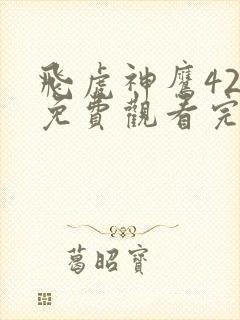 飛虎神鷹42
免費觀看完
葛昭寶